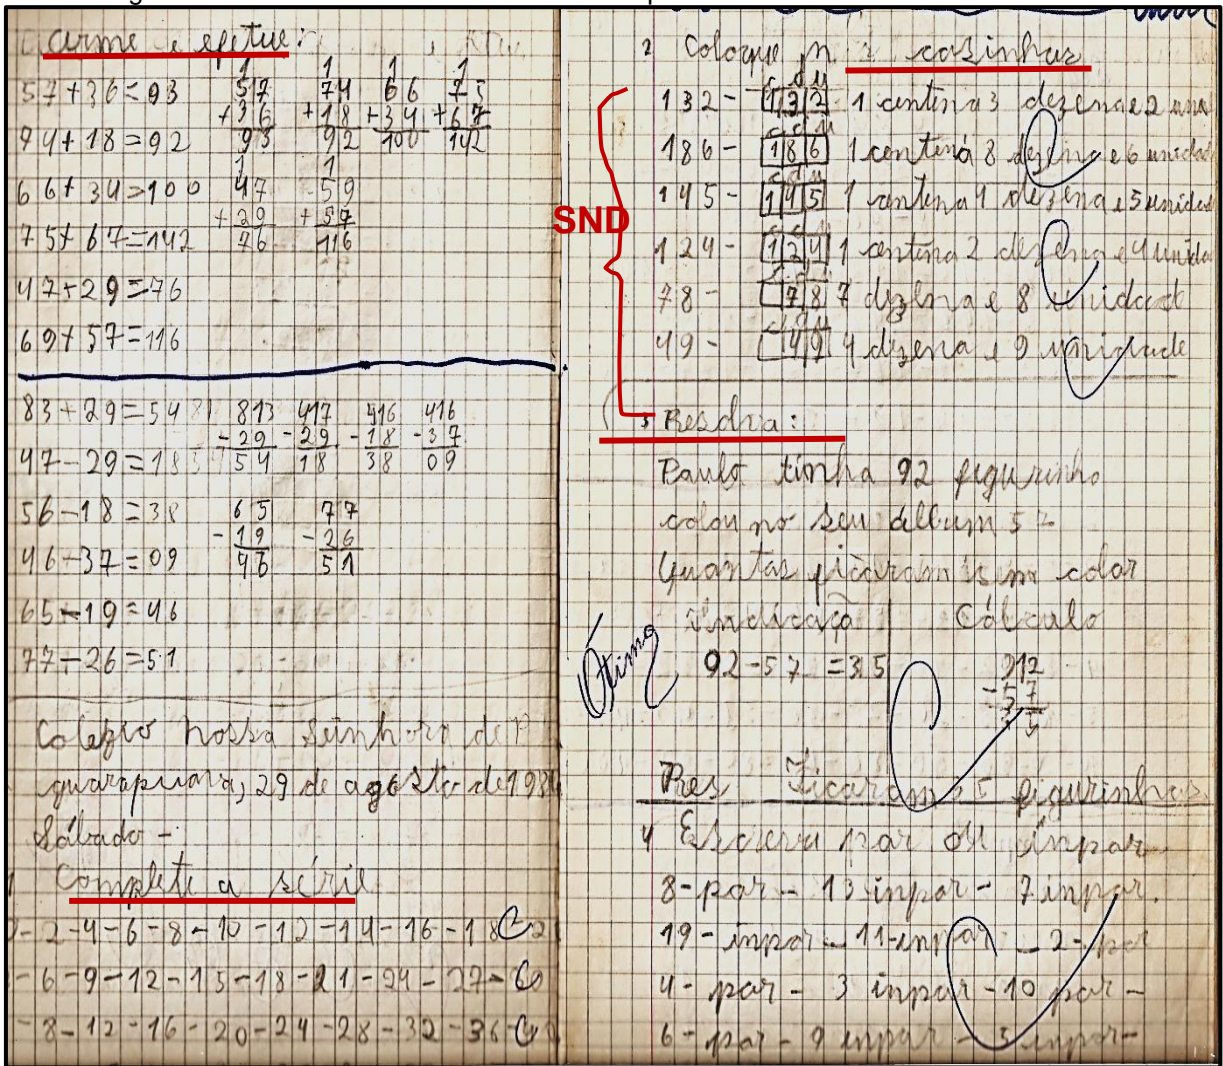 arme e efetue:
57+36=93
94+18=92
66+34=100
75+67=142
47+29=76
69+57=116
1 1 1 1
57 74 66 75
+36 +18 +34 +67
93 92 100 142
1 1
47 59
+29 +57
76 116
83+29=54
47-29=18
56-18=38
46-37=09
65-19=46
77-26=51
813 417 416 416
-29 -29 -18 -37
54 18 38 09
65 77
-19 -26
46 51
Colegio nossa Senhora de P
guarapuava, 29 de agosto de 19
Sábado -
Complete a série
-2-4-6-8-10-12-14-16-18
-6-9-12-15-18-21-24-27-
-8-12-16-20-24-28-32-36
2 Coloque n casinhas
SND
c d u
132- 132 1 centena 3 dezena e 2 uni
c d u
186- 186 1 centena 8 dezena e 6 unidad
c d u
145- 145 1 centena 4 dezena e 5 unidad
c d u
124- 124 1 centena 2 dezena e 4 unida
c d u
78- 78 7 dezena e 8 unidad
c d u
49- 49 4 dezena e 9 unidade
3 Resolva:
Paulo tinha 92 figurinha
colou no seu álbum 57
Quantas ficaram sem colar
Indicaçã Cálculo
Ótimo
92-57=35
912
-57
35
Res Ficaram 35 figurinhas
4 Escreva par ou inpar
8-par-13 inpar-7 inpar.
19-inpar-11-inpar-2-par
4-par-3 inpar-10 par-
6-par-9 inpar-5 inpar-